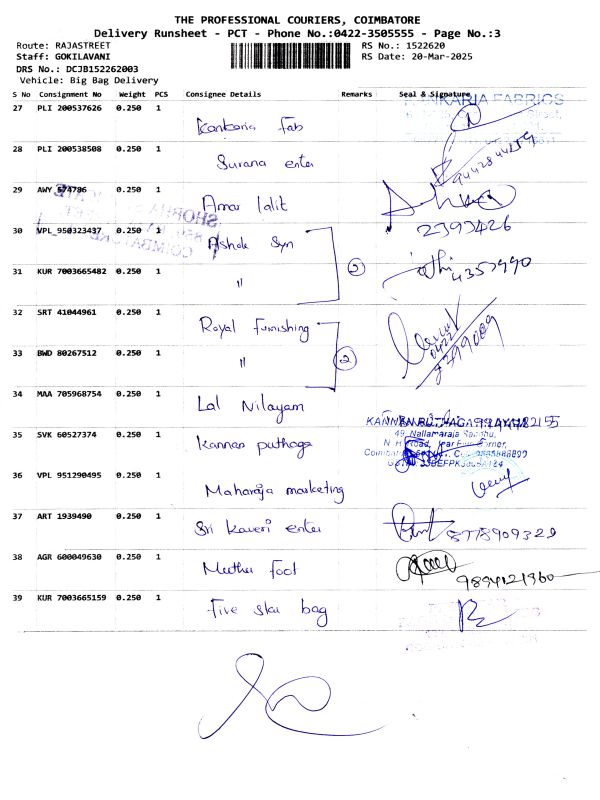 THE PROFESSIONAL COURIERS, COIMBATORE
Delivery Runsheet - PCT - Phone No.:0422-3505555 - Page No.:3
Route: RAJASTREET
RS No.: 1522620
Staff: GOKILAVANI
RS Date: 20-Mar-2025
DRS No.: DCJB152262003
Vehicle: Big Bag Delivery
S No Consignment No Weight PCS Consignee Details Remarks Seal & Signature
27 PLI 200537626 0.250 1 Kankaria Fab
28 PLI 200538508 0.250 1 Surana enter
29 AWY 674786 0.250 1 Amar lalit
2393426
30 VPL 950323437 0.250 1 Ashok Syn
31 KUR 7003665482 0.250 1 " 2
4353990
32 SRT 41044961 0.250 1 Royal Furnishing
33 BWD 80267512 0.250 1 " 2
34 MAA 705968754 0.250 1 Lal Nilayam
35 SVK 60527374 0.250 1 Kannan puthaga
49, Nallamaraja
36 VPL 951290495 0.250 1 Maharaja marketing
37 ART 1939490 0.250 1 Sri Kaveri enter
8778909329
38 AGR 600049630 0.250 1 Muthu Foot
39 KUR 7003665159 0.250 1 Five star bag